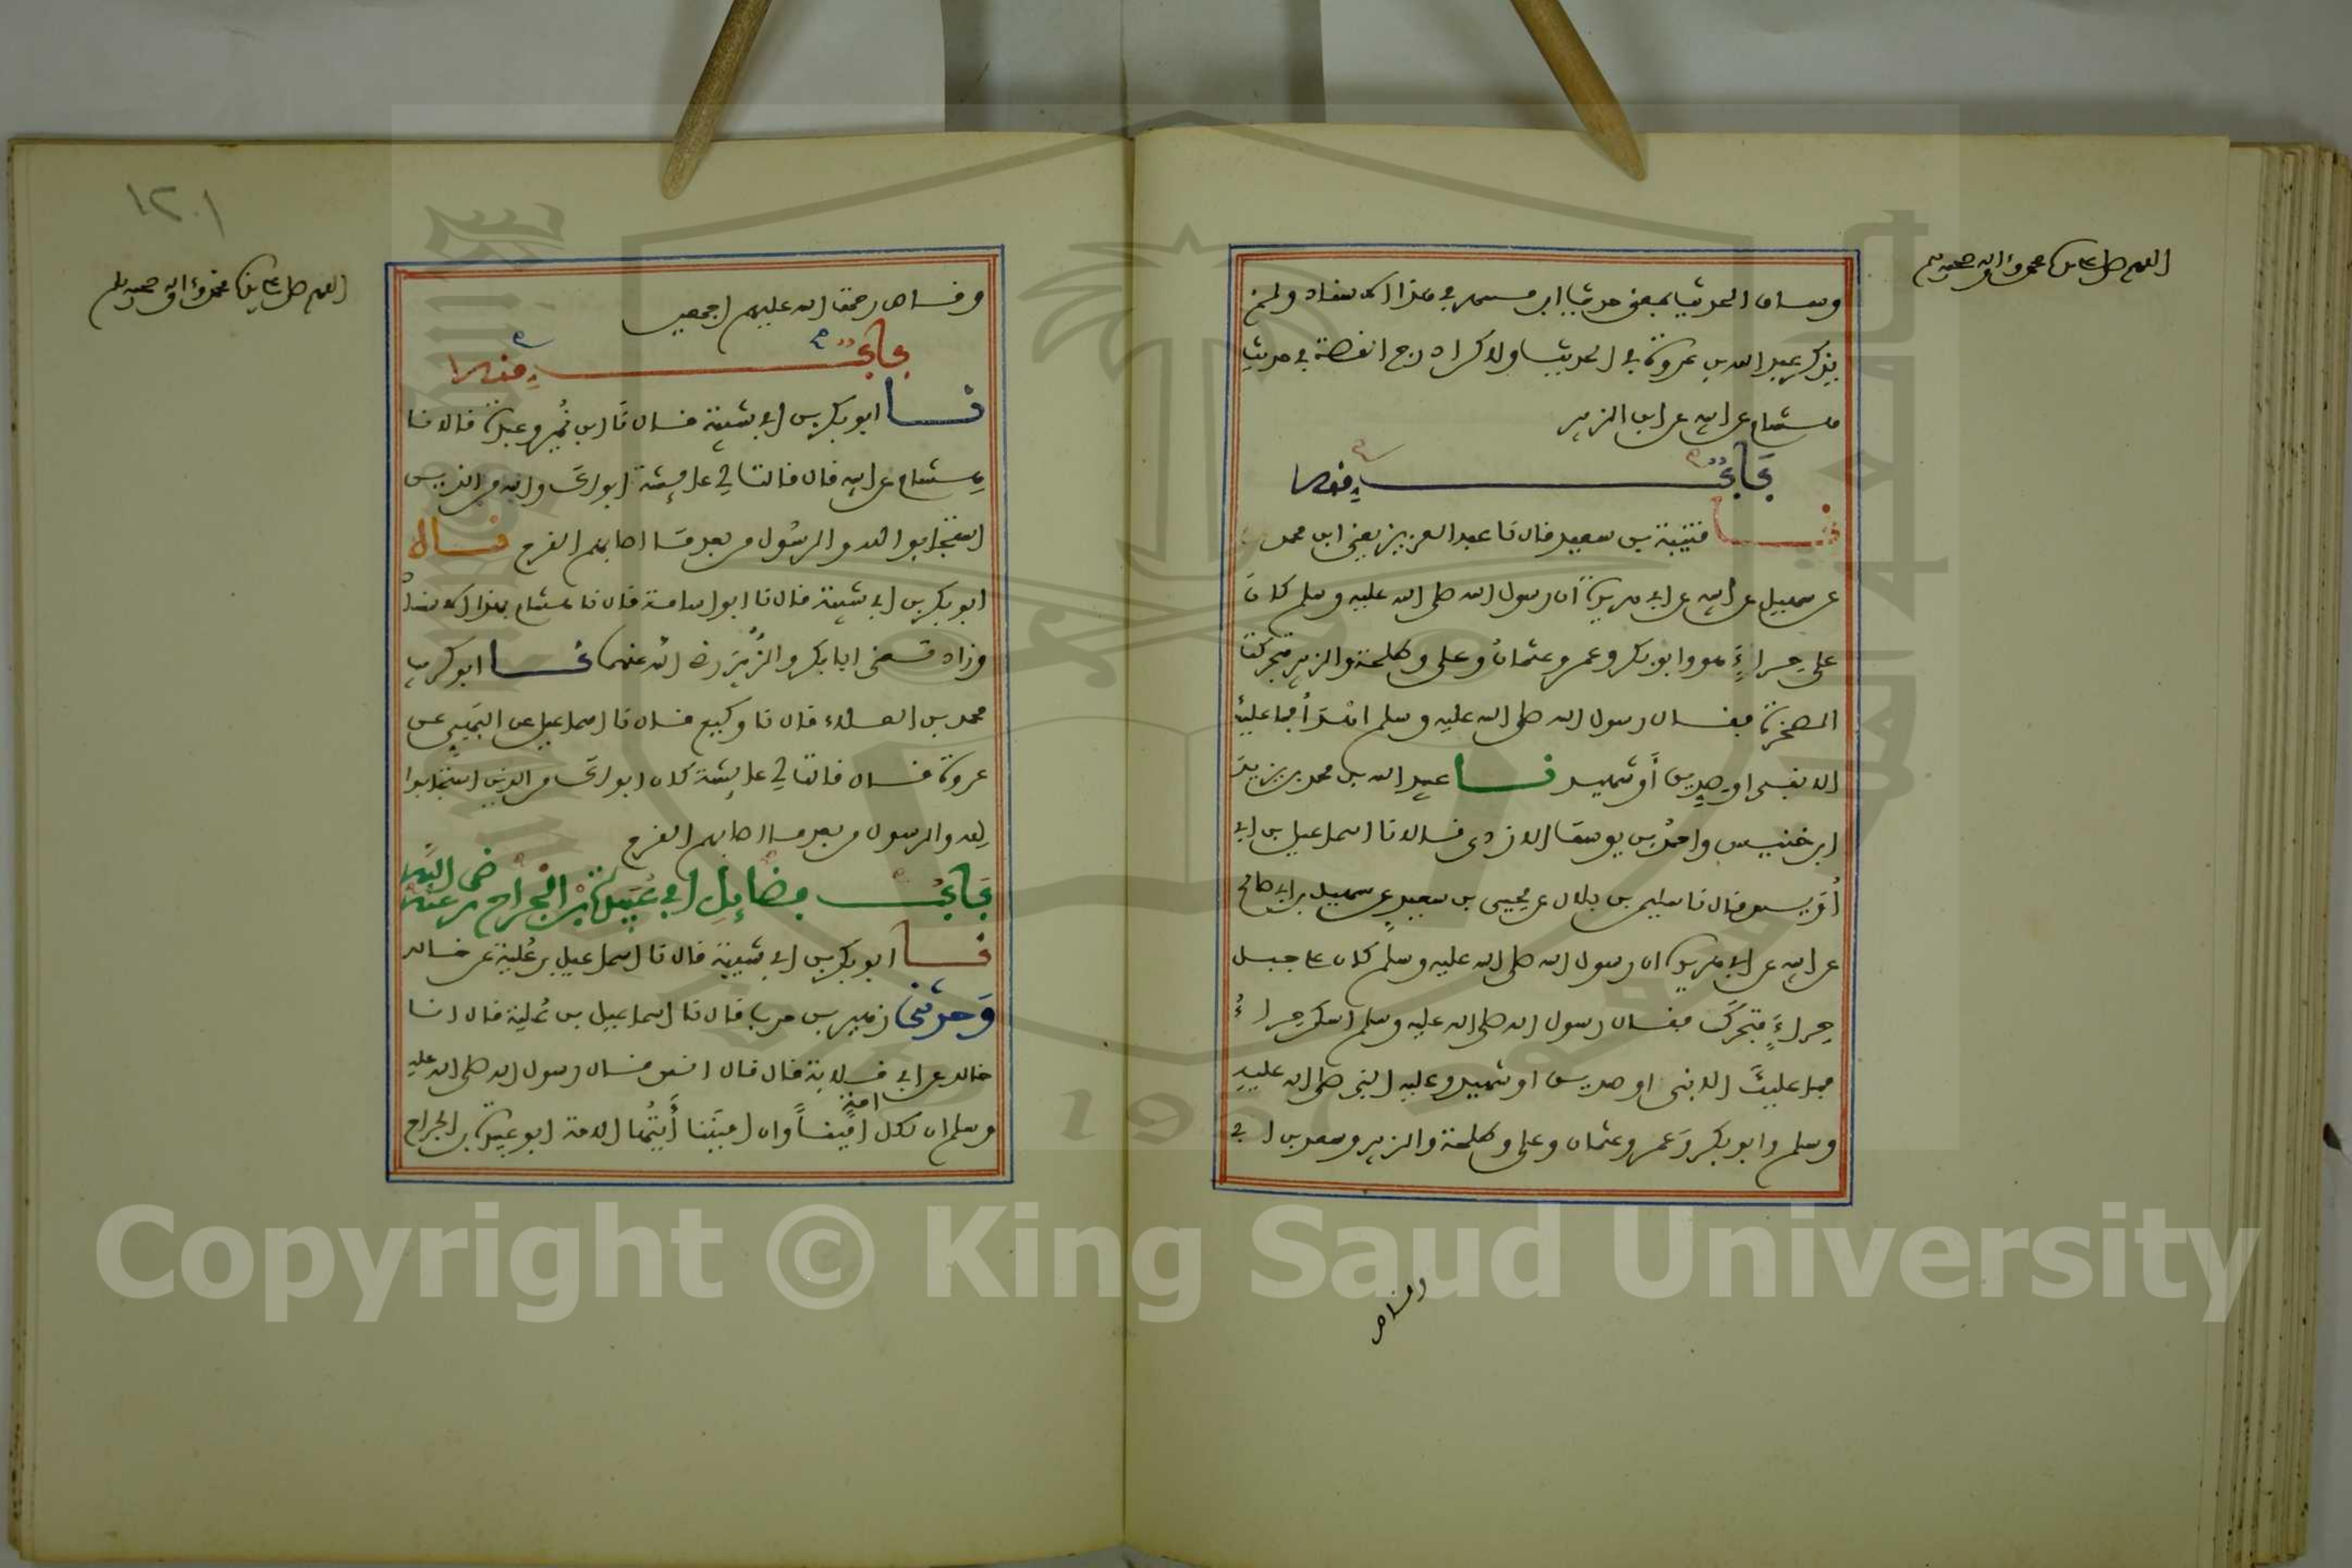 اللهم صل على سيدنا محمد وءاله وصحبه وسلم
وساق الحديث بمعنى حديث ابن مسهر في هذا الاسناد ولم
يذكر عبد الله بن عروة في الحديث ولاكن ادرج القصة في حديث
هشام عن ابيه عن ابن الزبير
باب منه
نا قتيبة بن سعيد قال نا عبد العزيز يعني ابن محمد
عن سهيل عن ابيه عن ابي هريرة أن رسول الله صلى الله عليه وسلم كان
على حراءٍ هو وابو بكر وعمر وعثمان وعلي وطلحة والزبير فتحركت
الصخرة فقال رسول الله صلى الله عليه وسلم اهدأ فما عليك
الا نبي او صديق أو شهيد نا عبيد الله بن محمد بن يزيد
ابن خنيس واحمد بن يوسف الازدي قالا نا اسماعيل بن ابي
أويس قال نا سليمن بن بلال عن يحيى بن سعيد عن سهيل بن ابي صالح
عن ابيه عن ابي هريرة ان رسول الله صلى الله عليه وسلم كان على جبل
حراءٍ فتحرك فقال رسول الله صلى الله عليه وسلم اسكن حراءُ
فما عليك الا نبي او صديق او شهيد وعليه النبي صلى الله عليه
وسلم وابو بكر وعمر وعثمان وعلي وطلحة والزبير وسعد بن ابي
وقاص
١٢٠١
اللهم صل على سيدنا محمد وءاله وصحبه وسلم
وقاص رحمت الله عليهم اجمعين
باب منه
نا ابو بكر بن ابي شيبة قال نا ابن نمير وعبدة قالا نا
هشام عن ابيه قال قالت لي عايشة ابواك والله من الذين
استجابوا لله والرسول من بعد ما اصابهم القرح قال
ابو بكر بن ابي شيبة قال نا ابو اسامة قال نا هشام بهذا الاسناد
وزاد تعني ابا بكر والزبير رضي الله عنهما نا ابو كريب
محمد بن العلاء قال نا وكيع قال نا اسماعيل عن البهي عن
عروة قال قالت لي عايشة كان ابواك من الذين استجابوا
لله والرسول من بعد ما اصابهم القرح
باب فضايل ابي عبيدة بن الجراح رضي الله عنه
نا ابو بكر بن ابي شيبة قال نا اسماعيل بن علية عن خالد
وحدثني زهير بن حرب قال نا اسماعيل بن علية قال انا
خالد عن ابي قلابة قال قال انس قال رسول الله صلى الله عليه
وسلم ان لكل امة اميناً وان اميننا أيتها الامة ابو عبيدة بن الجراح
Copyright © King Saud University